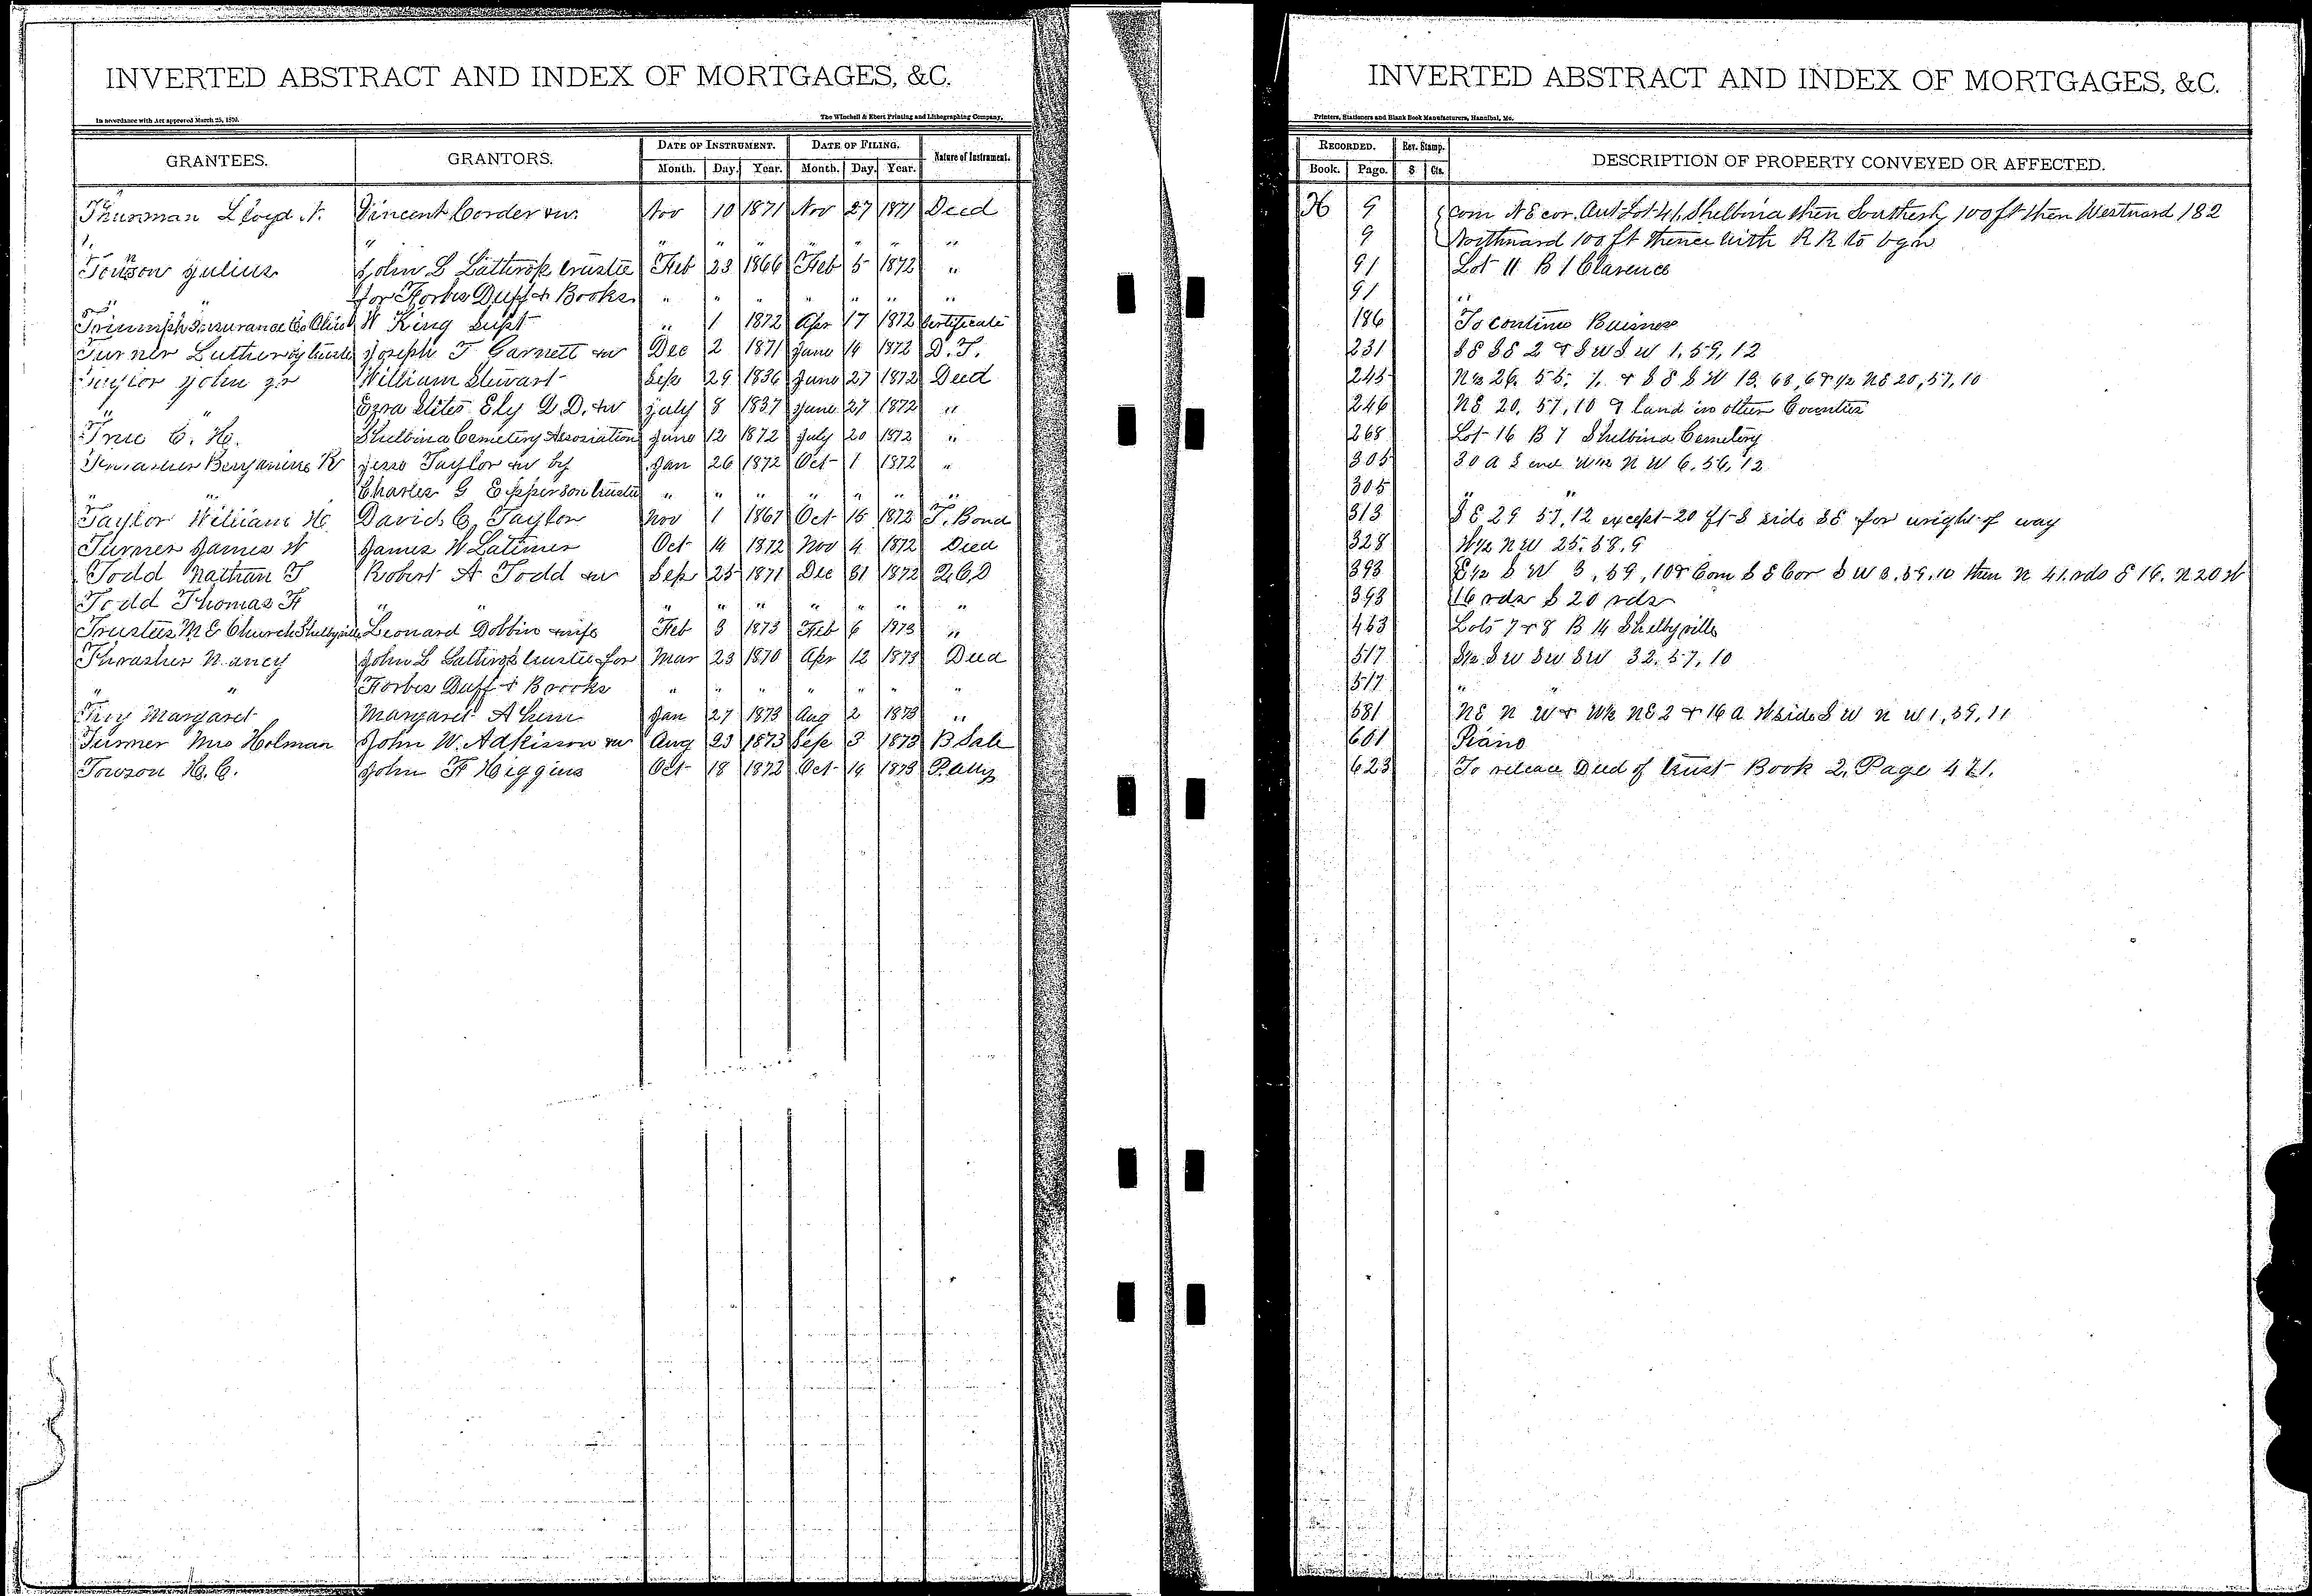 INVERTED ABSTRACT AND INDEX OF MORTGAGES, &C.
In accordance with Act approved March 25, 1870.
The Winchell & Ebert Printing and Lithographing Company,
GRANTEES. GRANTORS. DATE OF INSTRUMENT. DATE OF FILING. Nature of Instrument.
Month. Day. Year. Month. Day. Year.
Thurman Lloyd N. Vincent Corder & w. Nov 10 1871 Nov 27 1871 Deed
" " " " " " " " "
Towson Julius John L Lathrop trustee Feb 23 1866 Feb 5 1872 "
" " for Forbes Duff & Books " " " " " " "
Triumph Insurance Co W King Supt " 1 1872 Apr 17 1872 Certificate
Turner Luther by trustee Joseph T Garnett & w Dec 2 1871 June 14 1872 D. T.
Taylor John Jr William Stewart Sep 29 1836 June 27 1872 Deed
" " Ezra Stiles Ely D. D. & w July 8 1837 June 27 1872 "
True C. H. Shelbina Cemetery Association June 12 1872 July 20 1872 "
Thrasher Benjamine R Jesse Taylor & w by Jan 26 1872 Oct 1 1872 "
" " Charles G Epperson trustee " " " " " " "
Taylor William H David C. Taylor Nov 1 1867 Oct 15 1872 T. Bond
Turner James W James W Latimer Oct 14 1872 Nov 4 1872 Deed
Todd Nathan T Robert A Todd & w Sep 25 1871 Dec 31 1872 Q C D
Todd Thomas F " " " " " " " " "
Trustees M E Church Shelbyville Leonard Dobbin & wife Feb 3 1873 Feb 6 1873 "
Thrasher Nancy John L Lathrop trustee for Mar 23 1870 Apr 12 1873 Deed
" " Forbes Duff & Brooks " " " " " " "
Margaret Margaret A Jan 27 1873 Aug 2 1873 "
Turner Mrs Holman John W. Adkisson & w Aug 23 1873 Sep 3 1873 B Sale
Towson H. C. John F Higgins Oct 18 1872 Oct 14 1873 P. Atty
INVERTED ABSTRACT AND INDEX OF MORTGAGES, &C.
Printers, Stationers and Blank Book Manufacturers, Hannibal, Mo.
RECORDED. Rev. Stamp. DESCRIPTION OF PROPERTY CONVEYED OR AFFECTED.
Book. Page. $ Cts.
36 9 Com N E cor. Out Lot 41 Shelbina then Southerly 100 ft then Westward 182
9 Northward 100 ft thence with R R to bgin
91 Lot 11 B 1 Clarence
91 "
186 To continue Buisness
231 S E S E 2 & S W S W 1, 59, 12
245 N ½ 26. 55. & S E S W 13. 68, 6 & ½ N E 20, 57, 10
246 N E 20, 57, 10 & land in other Counties
268 Lot 16 B 7 Shelbina Cemetery
305 30 A S end W ½ N W 6. 56, 12
305 " "
313 S E 29 57, 12 except 20 ft S side S E for wright of way
328 W ½ N W 25. 58. 9
393 E ½ S W 3, 59, 10 & Com S E Cor S W 3. 59. 10 then N 41. rds E 16. N 20 st
393 16 rds S 20 rds
463 Lots 7 & 8 B 14 Shelbyville
517 S ½ S W S W S W 32. 57, 10
517 "
581 N E N W & W ½ N E 2 & 16 a W side S W N W 1, 59, 11
601 Piano
623 To release Deed of trust Book 2, Page 471.